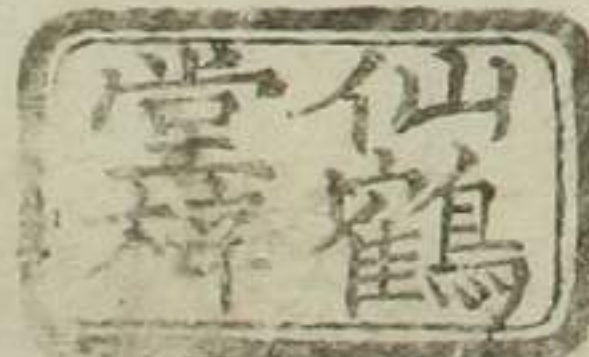 仙鶴
堂梓